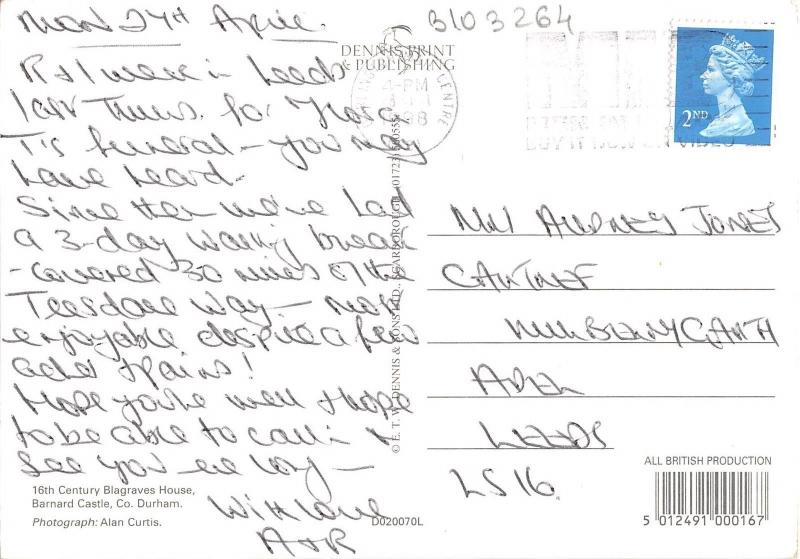 MON 27th April.
R & I were in Leeds
last Thurs. for
T's funeral – you may
have heard.
Since then we've had
a 3-day walking break
- covered 30 miles of the
Teesdale Way – most
enjoyable despite a few
aches & pains!
Hope you're well & hope
to be able to call in &
see you ere long –
With love
A & R
16th Century Blagraves House,
Barnard Castle, Co. Durham.
Photograph: Alan Curtis.
D020070L
3103264
DENNIS PRINT
& PUBLISHING
4-PM
98
CENTRE
2ND
© E. T. W. DENNIS & SONS LTD., SCARBOROUGH (01723)
AUDREY JONES
ADEL
LEEDS
LS16.
ALL BRITISH PRODUCTION
5 012491 000167